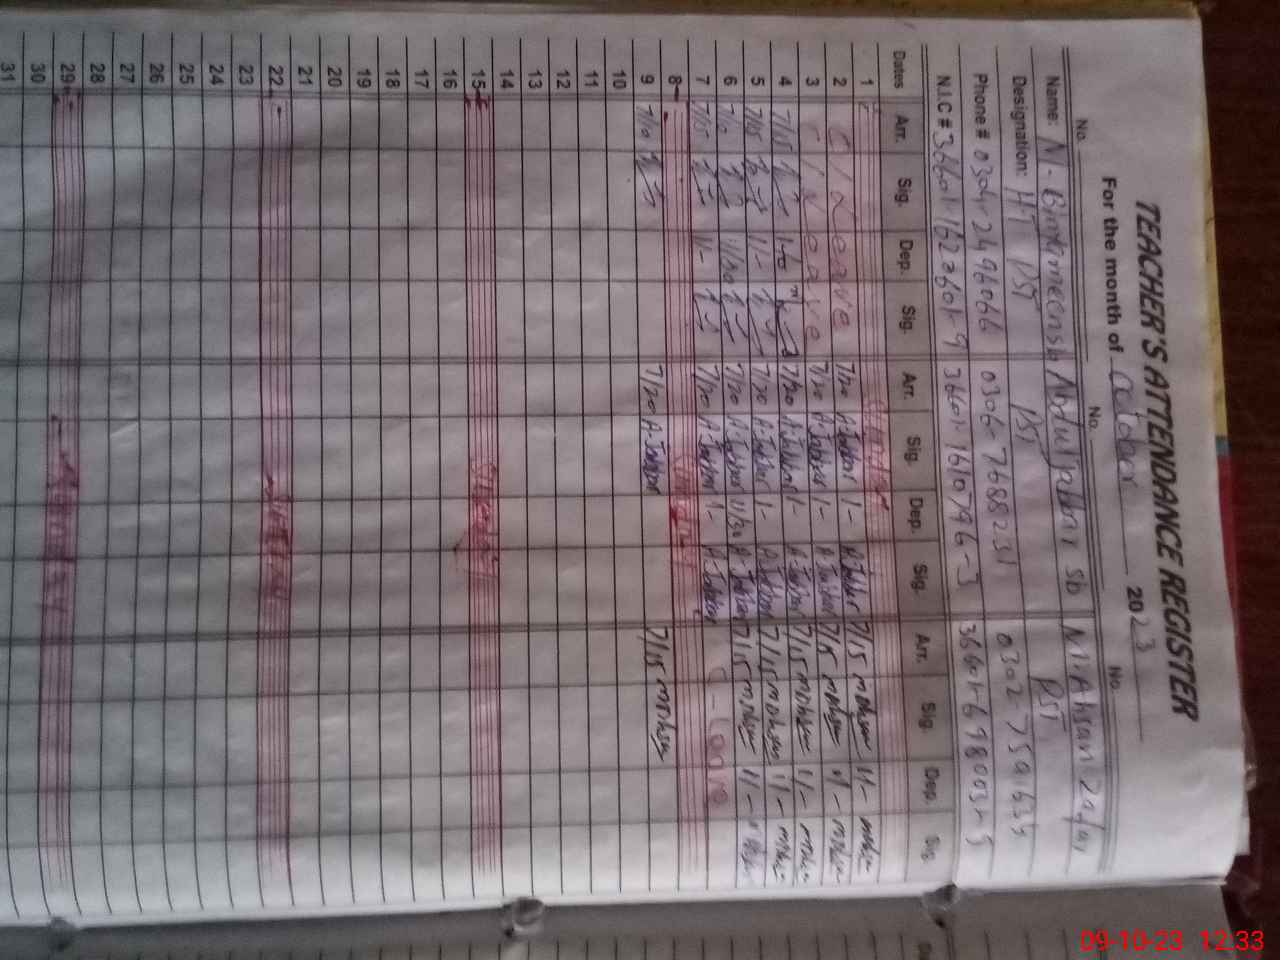 TEACHER'S ATTENDANCE REGISTER
For the month of October 2023
No. No. No.
Name: Abdul Jabbar sb M. Ahsan Zafar
Designation: HT PST PST PST
Phone # 0304-2496066 0306-7688231
N.I.C #
Dates Arr. Sig. Dep. Sig. Arr. Sig. Dep. Sig. Arr. Sig. Dep. Sig.
1 Sunday
2 C/Leave 7/20 A-Jabbar 1- A-Jabbar 7/15 mohsin 1/- mohsin
3 C/Leave 7/20 A-Jabbar 1- A-Jabbar 7/15 mohsin 1/- mohsin
4 7/15 7/20 A-Jabbar 1- A-Jabbar 7/15 mohsin 1/- mohsin
5 7/15 1/- 7/20 A-Jabbar 1- A-Jabbar 7/15 mohsin 1/- mohsin
6 7/10 11/30 7/20 A-Jabbar 11/30 A-Jabbar 7/15 mohsin 11/-
7 7/15 1/- 7/20 A-Jabbar 1- A-Jabbar C-Leave
8 Sunday
9 7/10 7/20 A-Jabbar 7/15 mohsin
10
11
12
13
14
15 Sunday
16
17
18
19
20
21
22 Sunday
23
24
25
26
27
28
29 Sunday
30
31
09-10-23 12:33